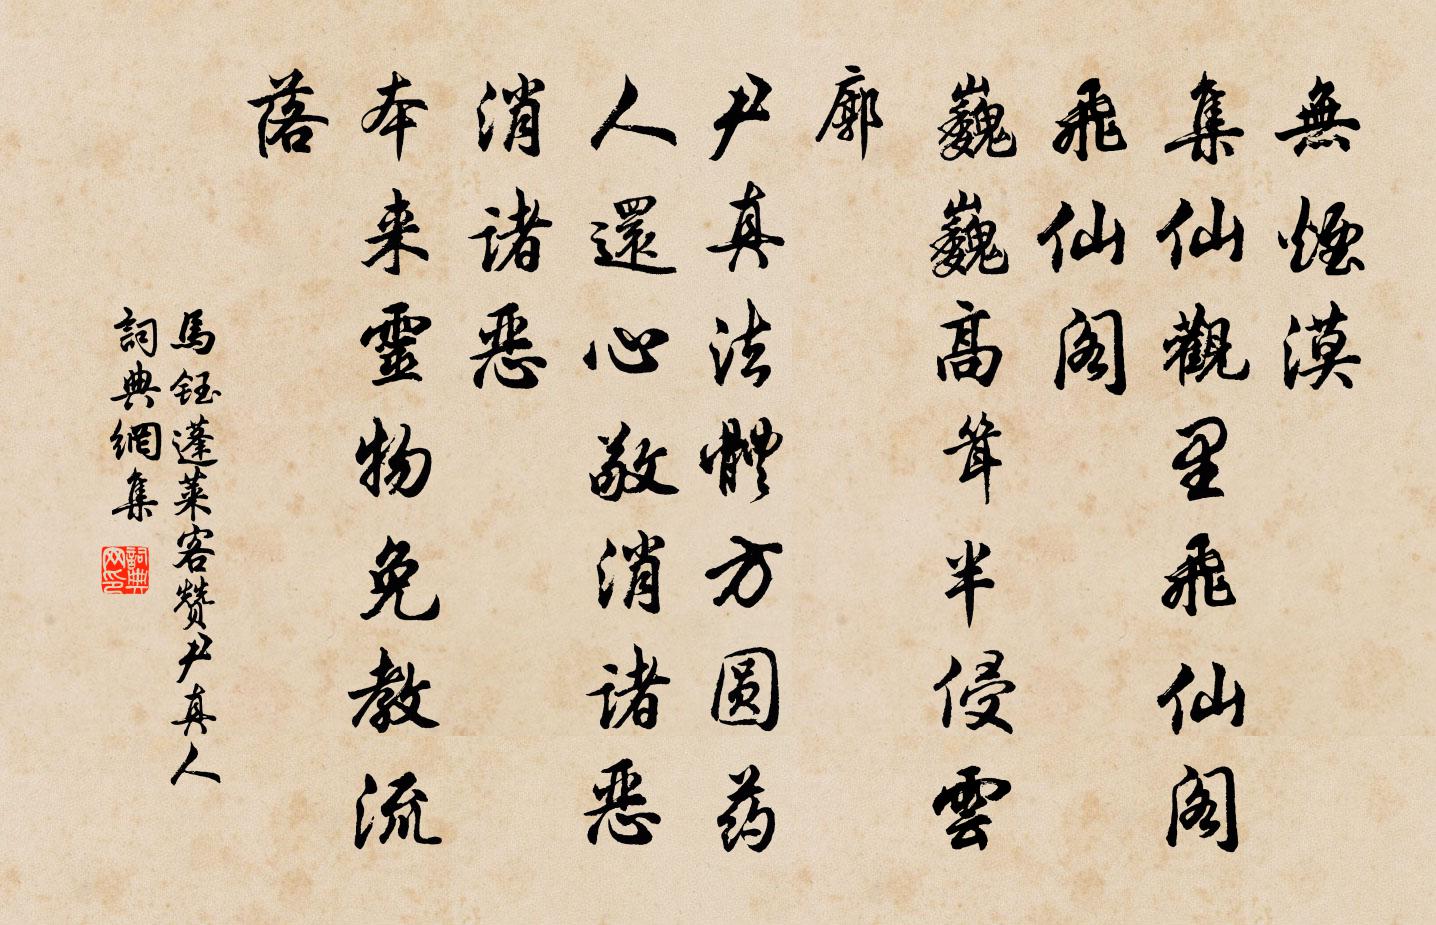 無煙漠
集仙觀里飛仙阁
飛仙阁
巍巍高聳半侵雲
廓
尹真法體方圆药
人還心敬消诸恶
消诸恶
本来靈物免教流
落
馬钰蓬莱客赞尹真人
詞典網集
詞典网印